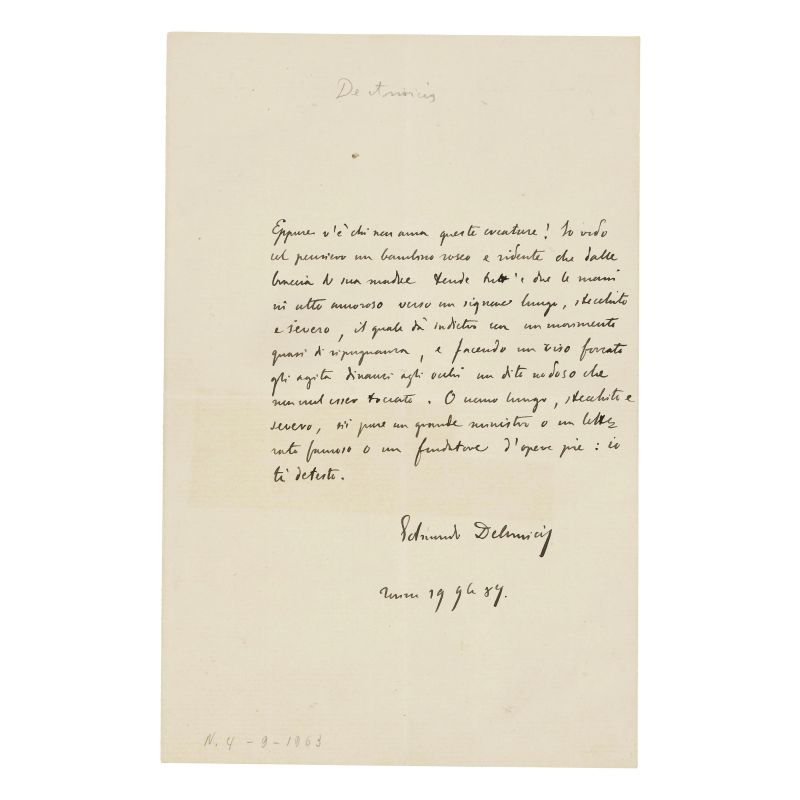 De Amicis
Eppure v'è chi non ama queste creature! Io vedo
col pensiero un bambino roseo e ridente che dalle
braccia di sua madre tende tutt'e due le mani
in atto amoroso verso un signore lungo, stecchito
e severo, il quale dà indietro con un movimento
quasi di ripugnanza, e facendo un riso forzato
gli agita dinanzi agli occhi un dito nodoso che
non vuol esser toccato. O uomo lungo, stecchito e
severo, sii pure un grande ministro o un lette
rato famoso o un fondatore d'opere pie: io
ti detesto.
Edmondo DeAmicis
19 9bre
N. 4-9-1963